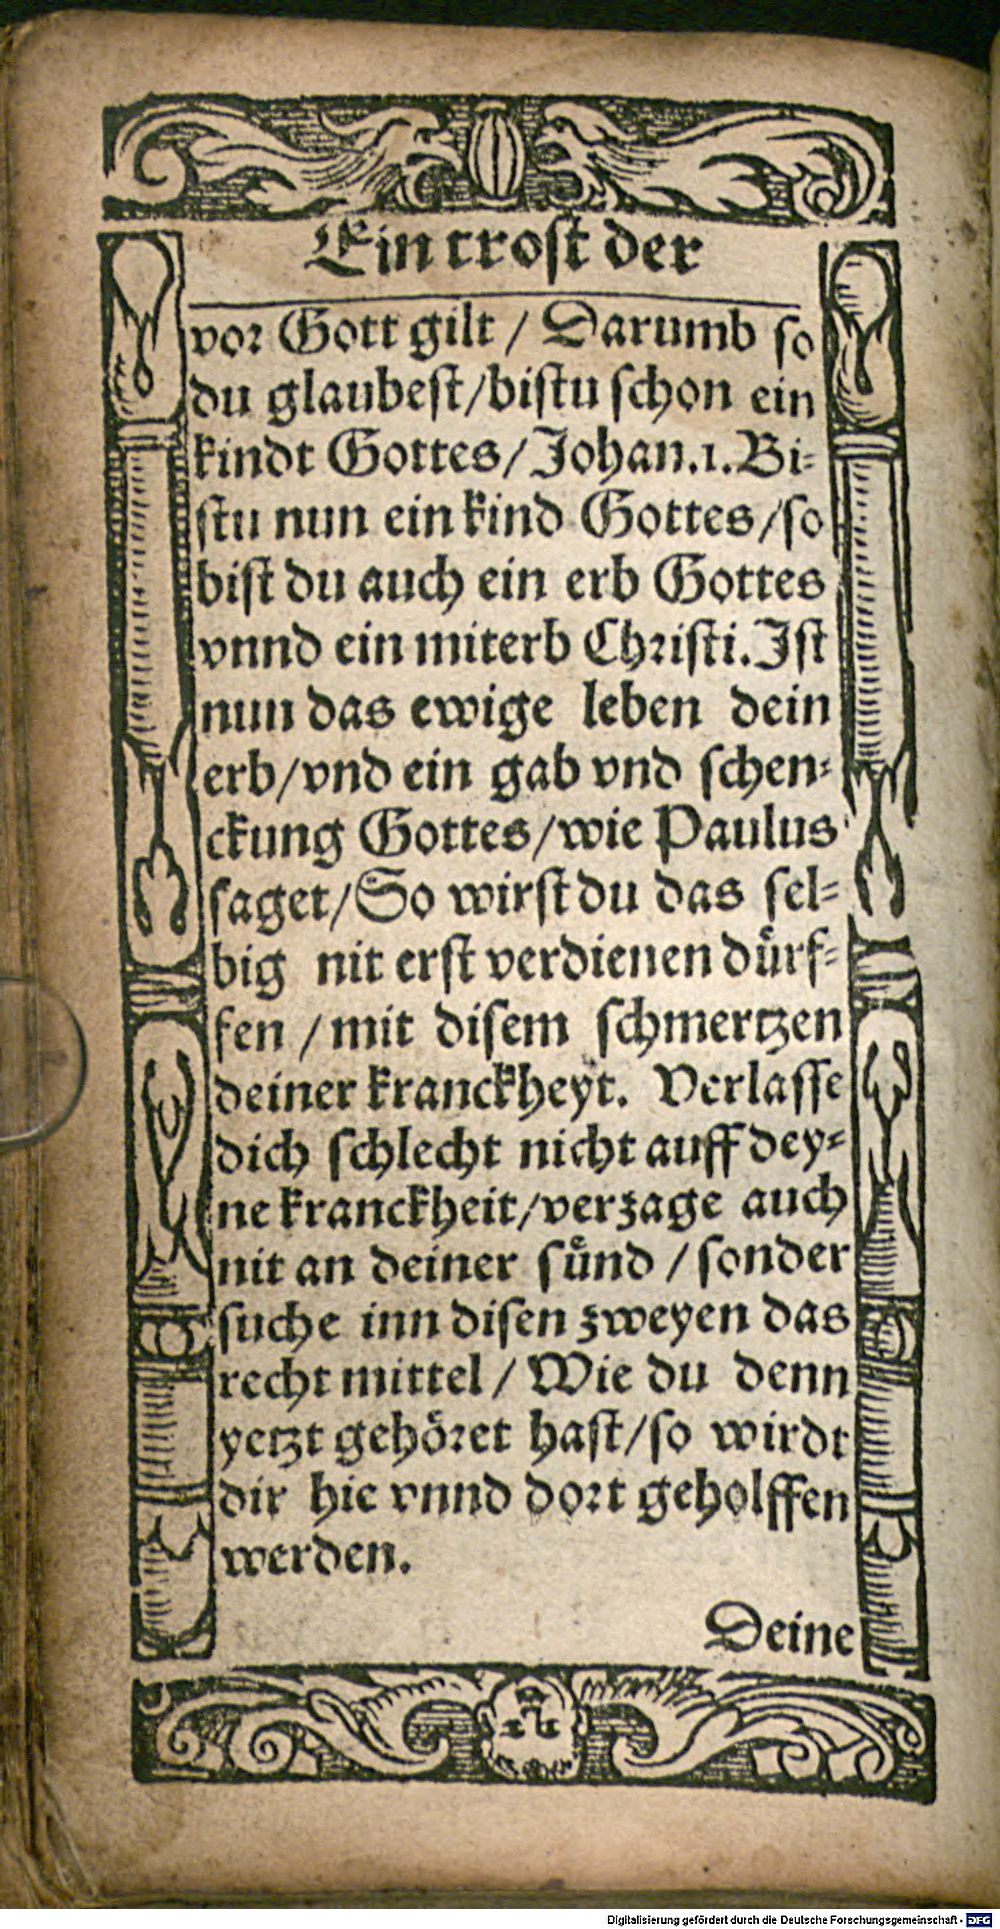 Ein trost der
vor Gott gilt / Darumb so
du glaubest/bistu schon ein
kindt Gottes/Johan.1.Bi⸗
stu nun ein kind Gottes/so
bist du auch ein erb Gottes
vnnd ein miterb Christi.Ist
nun das ewige leben dein
erb/vnd ein gab vnd schen⸗
ckung Gottes/wie Paulus
saget/So wirst du das sel⸗
big nit erst verdienen duͤrf⸗
fen /mit disem schmertzen
deiner kranckheyt. Verlasse
dich schlecht nicht auff dey⸗
ne kranckheit/verzage auch
nit an deiner suͤnd /sonder
suche inn disen zweyen das
recht mittel / Wie du denn
yetzt gehoͤret hast/so wirdt
dir hie vnnd dort geholffen
werden.
Deine
Digitalisierung gefördert durch die Deutsche Forschungsgemeinschaft - DFG